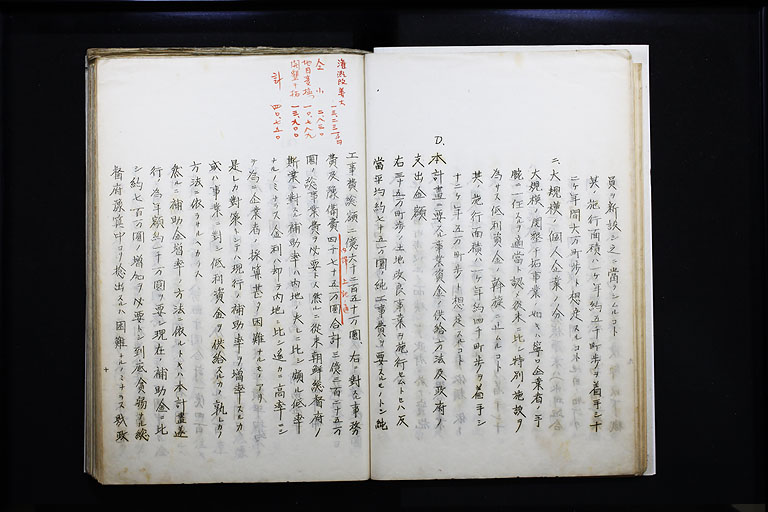 員ヲ新設シ之ニ當ラシムルコト
其ノ施行面積ハ一ケ年約五千町歩ヲ着手シ十
二ケ年間六万町歩ト想定スルコト
二、大規模ノ個人企業ノ分
大規模ノ開墾干拓事業ノ如キハ寧ロ企業者ノ手
腕ニ一任スルヲ適當ト認メ従来ニ比シ特別ノ施設ヲ
為サス低利資金ノ斡旋ニ止ムルコト
其ノ施行面積ハ一ケ年約四千町歩ヲ着手シ
十二ケ年五万町歩ト想定スルコト
D. 本計畫ニ要スル事業資金ノ供給方法及政府ノ
支出金額
右三十五万町歩ノ土地改良事業ヲ施行セムトセハ反
當平均約七十五円ノ純工事費ヲ要スルモノトシ純
灌漑改善 大 一三、二三
仝 小 二、八二〇
地目変換 一〇、七八九
開墾干拓 一三、九〇〇
計 四〇、七五〇
工事費總額二億六千二百五十万圓、右ニ對スル事務
費及豫備費四千七十五万圓合計三億三百二十五万
圓ノ総事業費ヲ必要トス然ルニ従来朝鮮総督府ノ
斯業ニ對スル補助率ハ内地ノ夫レニ比シ頗ル低率
ナルノミナラス金利ハ却テ内地ニ比シ遙カニ高率ニシ
テ為ニ企業者ノ採算甚タ困難ナルモノアリ
是レカ對策トシテハ現行ノ補助率ヲ増率スルカ
或ハ事業ニ對シ低利資金ヲ供給スルカノ孰レカノ
方法ニ依ラサルヘカラス
然ルニ補助金増率ノ方法ニ依ルトキハ本計畫遂
行ノ為年額約二千万圓ヲ要シ現在ノ補助金ニ比
シ約七百万圓ノ増加ヲ必要トシ到底貧弱ナル総
督府豫算中ヨリ捻出スルハ困難ナルノミナラス財政